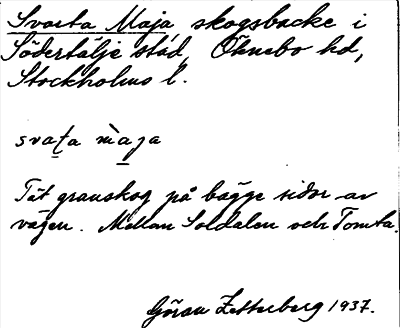 Svarta Maja skogsbacke i
Södertälje stad, Öknebo hd,
Stockholms l.
svaṯa ma̱ja
Tät granskog på bägge sidor av
vägen. Mellan Soldalen och Tomta.
Göran Zetterberg 1937.